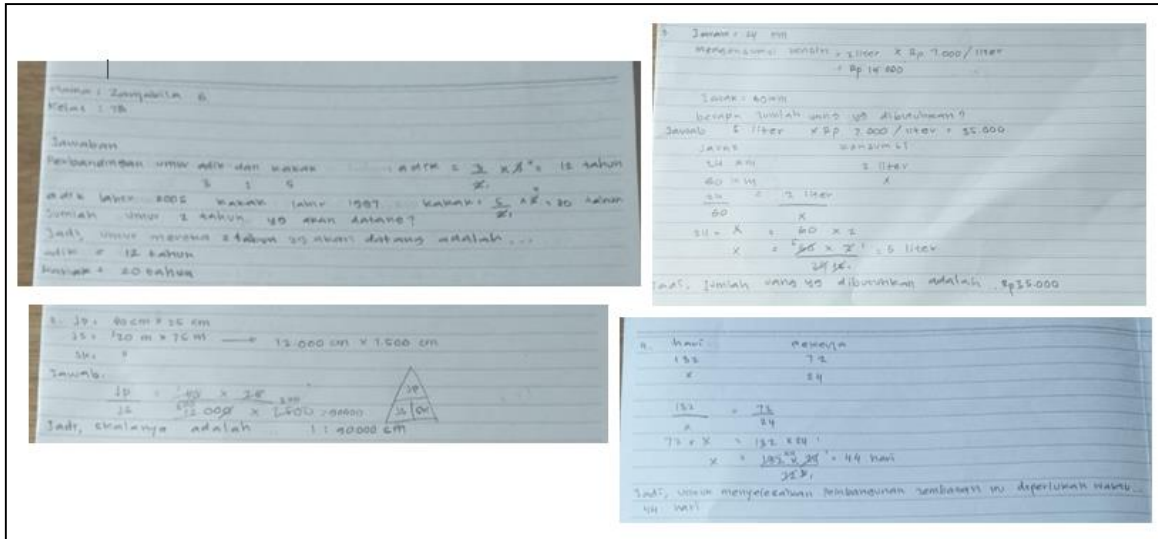 Nama : Zamabila G
Kelas : 7B
Jawaban
Perbandingan umur adik dan kakak adik = 3 x 8 = 12 tahun
3 : 5
adik lahir 2005 kakak lahir 1997 kakak = 5 x 8 = 20 tahun
Jumlah umur 2 tahun yg akan datang?
Jadi, umur mereka 2 tahun yg akan datang adalah...
adik = 12 tahun
kakak = 20 tahun
2. Jp = 40 cm x 25 cm
Js = 120 m x 75 m → 12.000 cm x 7.500 cm
Sk = x
Jawab.
Jp = 40 x 25
Js 12.000 x 7.500 = 90000
Jp
Js Sk
Jadi, skalanya adalah 1 : 90000 cm
3. Jarak = 24 km
mengonsumsi bensin = 2 liter x Rp 7.000/liter
= Rp 14.000
Jarak = 60 km
berapa jumlah uang yg dibutuhkan?
Jawab 5 liter x Rp 7.000/liter = 35.000
Jarak konsumsi
24 km 2 liter
60 km x
24 = 2 liter
60 x
24 x = 60 x 2
x = 60 x 2 = 5 liter
24
Jadi, jumlah uang yg dibutuhkan adalah Rp35.000
4. hari pekerja
132 72
x 24
132 = 72
x 24
72 x x = 132 x 24
x = 132 x 24 = 44 hari
72
Jadi, untuk menyelesaikan pembangunan jembatan itu diperlukan waktu...
44 hari